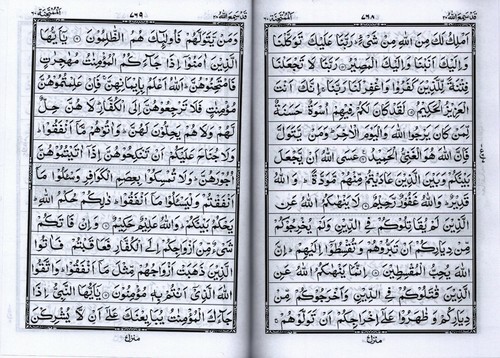 قَدْ سَمِعَ اللهُ ٢٨ ٧٦٨ اَلْمُمْتَحِنَة ٦٠
اَمْلِكُ لَكَ مِنَ اللّٰهِ مِنْ شَیْءٍ ؕ رَبَّنَا عَلَیْكَ تَوَكَّلْنَا
وَاِلَیْكَ اَنَبْنَا وَاِلَیْكَ الْمَصِیْرُ ۝ رَبَّنَا لَا تَجْعَلْنَا
فِتْنَةً لِّلَّذِیْنَ كَفَرُوْا وَاغْفِرْ لَنَا رَبَّنَا ۚ اِنَّكَ اَنْتَ
الْعَزِیْزُ الْحَكِیْمُ ۝ لَقَدْ كَانَ لَكُمْ فِیْهِمْ اُسْوَةٌ حَسَنَةٌ
لِّمَنْ كَانَ یَرْجُوا اللّٰهَ وَالْیَوْمَ الْاٰخِرَ ؕ وَمَنْ یَّتَوَلَّ
فَاِنَّ اللّٰهَ هُوَ الْغَنِیُّ الْحَمِیْدُ ۝ عَسَی اللّٰهُ اَنْ یَّجْعَلَ
بَیْنَكُمْ وَبَیْنَ الَّذِیْنَ عَادَیْتُمْ مِّنْهُمْ مَّوَدَّةً ؕ وَاللّٰهُ
قَدِیْرٌ ؕ وَاللّٰهُ غَفُوْرٌ رَّحِیْمٌ ۝ لَا یَنْهٰىكُمُ اللّٰهُ عَنِ
الَّذِیْنَ لَمْ یُقَاتِلُوْكُمْ فِی الدِّیْنِ وَلَمْ یُخْرِجُوْكُمْ
مِّنْ دِیَارِكُمْ اَنْ تَبَرُّوْهُمْ وَتُقْسِطُوْۤا اِلَیْهِمْ ؕ اِنَّ
اللّٰهَ یُحِبُّ الْمُقْسِطِیْنَ ۝ اِنَّمَا یَنْهٰىكُمُ اللّٰهُ عَنِ
الَّذِیْنَ قٰتَلُوْكُمْ فِی الدِّیْنِ وَاَخْرَجُوْكُمْ مِّنْ
دِیَارِكُمْ وَظٰهَرُوْا عَلٰۤی اِخْرَاجِكُمْ اَنْ تَوَلَّوْهُمْ ۚ
منزل٧
قَدْ سَمِعَ اللهُ ٢٨ ٧٦٩ اَلْمُمْتَحِنَة ٦٠
وَمَنْ یَّتَوَلَّهُمْ فَاُولٰٓئِكَ هُمُ الظّٰلِمُوْنَ ۝ یٰۤاَیُّهَا
الَّذِیْنَ اٰمَنُوْۤا اِذَا جَآءَكُمُ الْمُؤْمِنٰتُ مُهٰجِرٰتٍ
فَامْتَحِنُوْهُنَّ ؕ اَللّٰهُ اَعْلَمُ بِاِیْمَانِهِنَّ ۚ فَاِنْ عَلِمْتُمُوْهُنَّ
مُؤْمِنٰتٍ فَلَا تَرْجِعُوْهُنَّ اِلَی الْكُفَّارِ ؕ لَا هُنَّ حِلٌّ
لَّهُمْ وَلَا هُمْ یَحِلُّوْنَ لَهُنَّ ؕ وَاٰتُوْهُمْ مَّاۤ اَنْفَقُوْا ؕ
وَلَا جُنَاحَ عَلَیْكُمْ اَنْ تَنْكِحُوْهُنَّ اِذَاۤ اٰتَیْتُمُوْهُنَّ
اُجُوْرَهُنَّ ؕ وَلَا تُمْسِكُوْا بِعِصَمِ الْكَوَافِرِ وَسْـَٔلُوْا مَاۤ
اَنْفَقْتُمْ وَلْیَسْـَٔلُوْا مَاۤ اَنْفَقُوْا ؕ ذٰلِكُمْ حُكْمُ اللّٰهِ ؕ
یَحْكُمُ بَیْنَكُمْ ؕ وَاللّٰهُ عَلِیْمٌ حَكِیْمٌ ۝ وَاِنْ فَاتَكُمْ
شَیْءٌ مِّنْ اَزْوَاجِكُمْ اِلَی الْكُفَّارِ فَعَاقَبْتُمْ فَاٰتُوا
الَّذِیْنَ ذَهَبَتْ اَزْوَاجُهُمْ مِّثْلَ مَاۤ اَنْفَقُوْا ؕ وَاتَّقُوا
اللّٰهَ الَّذِیْۤ اَنْتُمْ بِهٖ مُؤْمِنُوْنَ ۝ یٰۤاَیُّهَا النَّبِیُّ اِذَا
جَآءَكَ الْمُؤْمِنٰتُ یُبَایِعْنَكَ عَلٰۤی اَنْ لَّا یُشْرِكْنَ
منزل٧